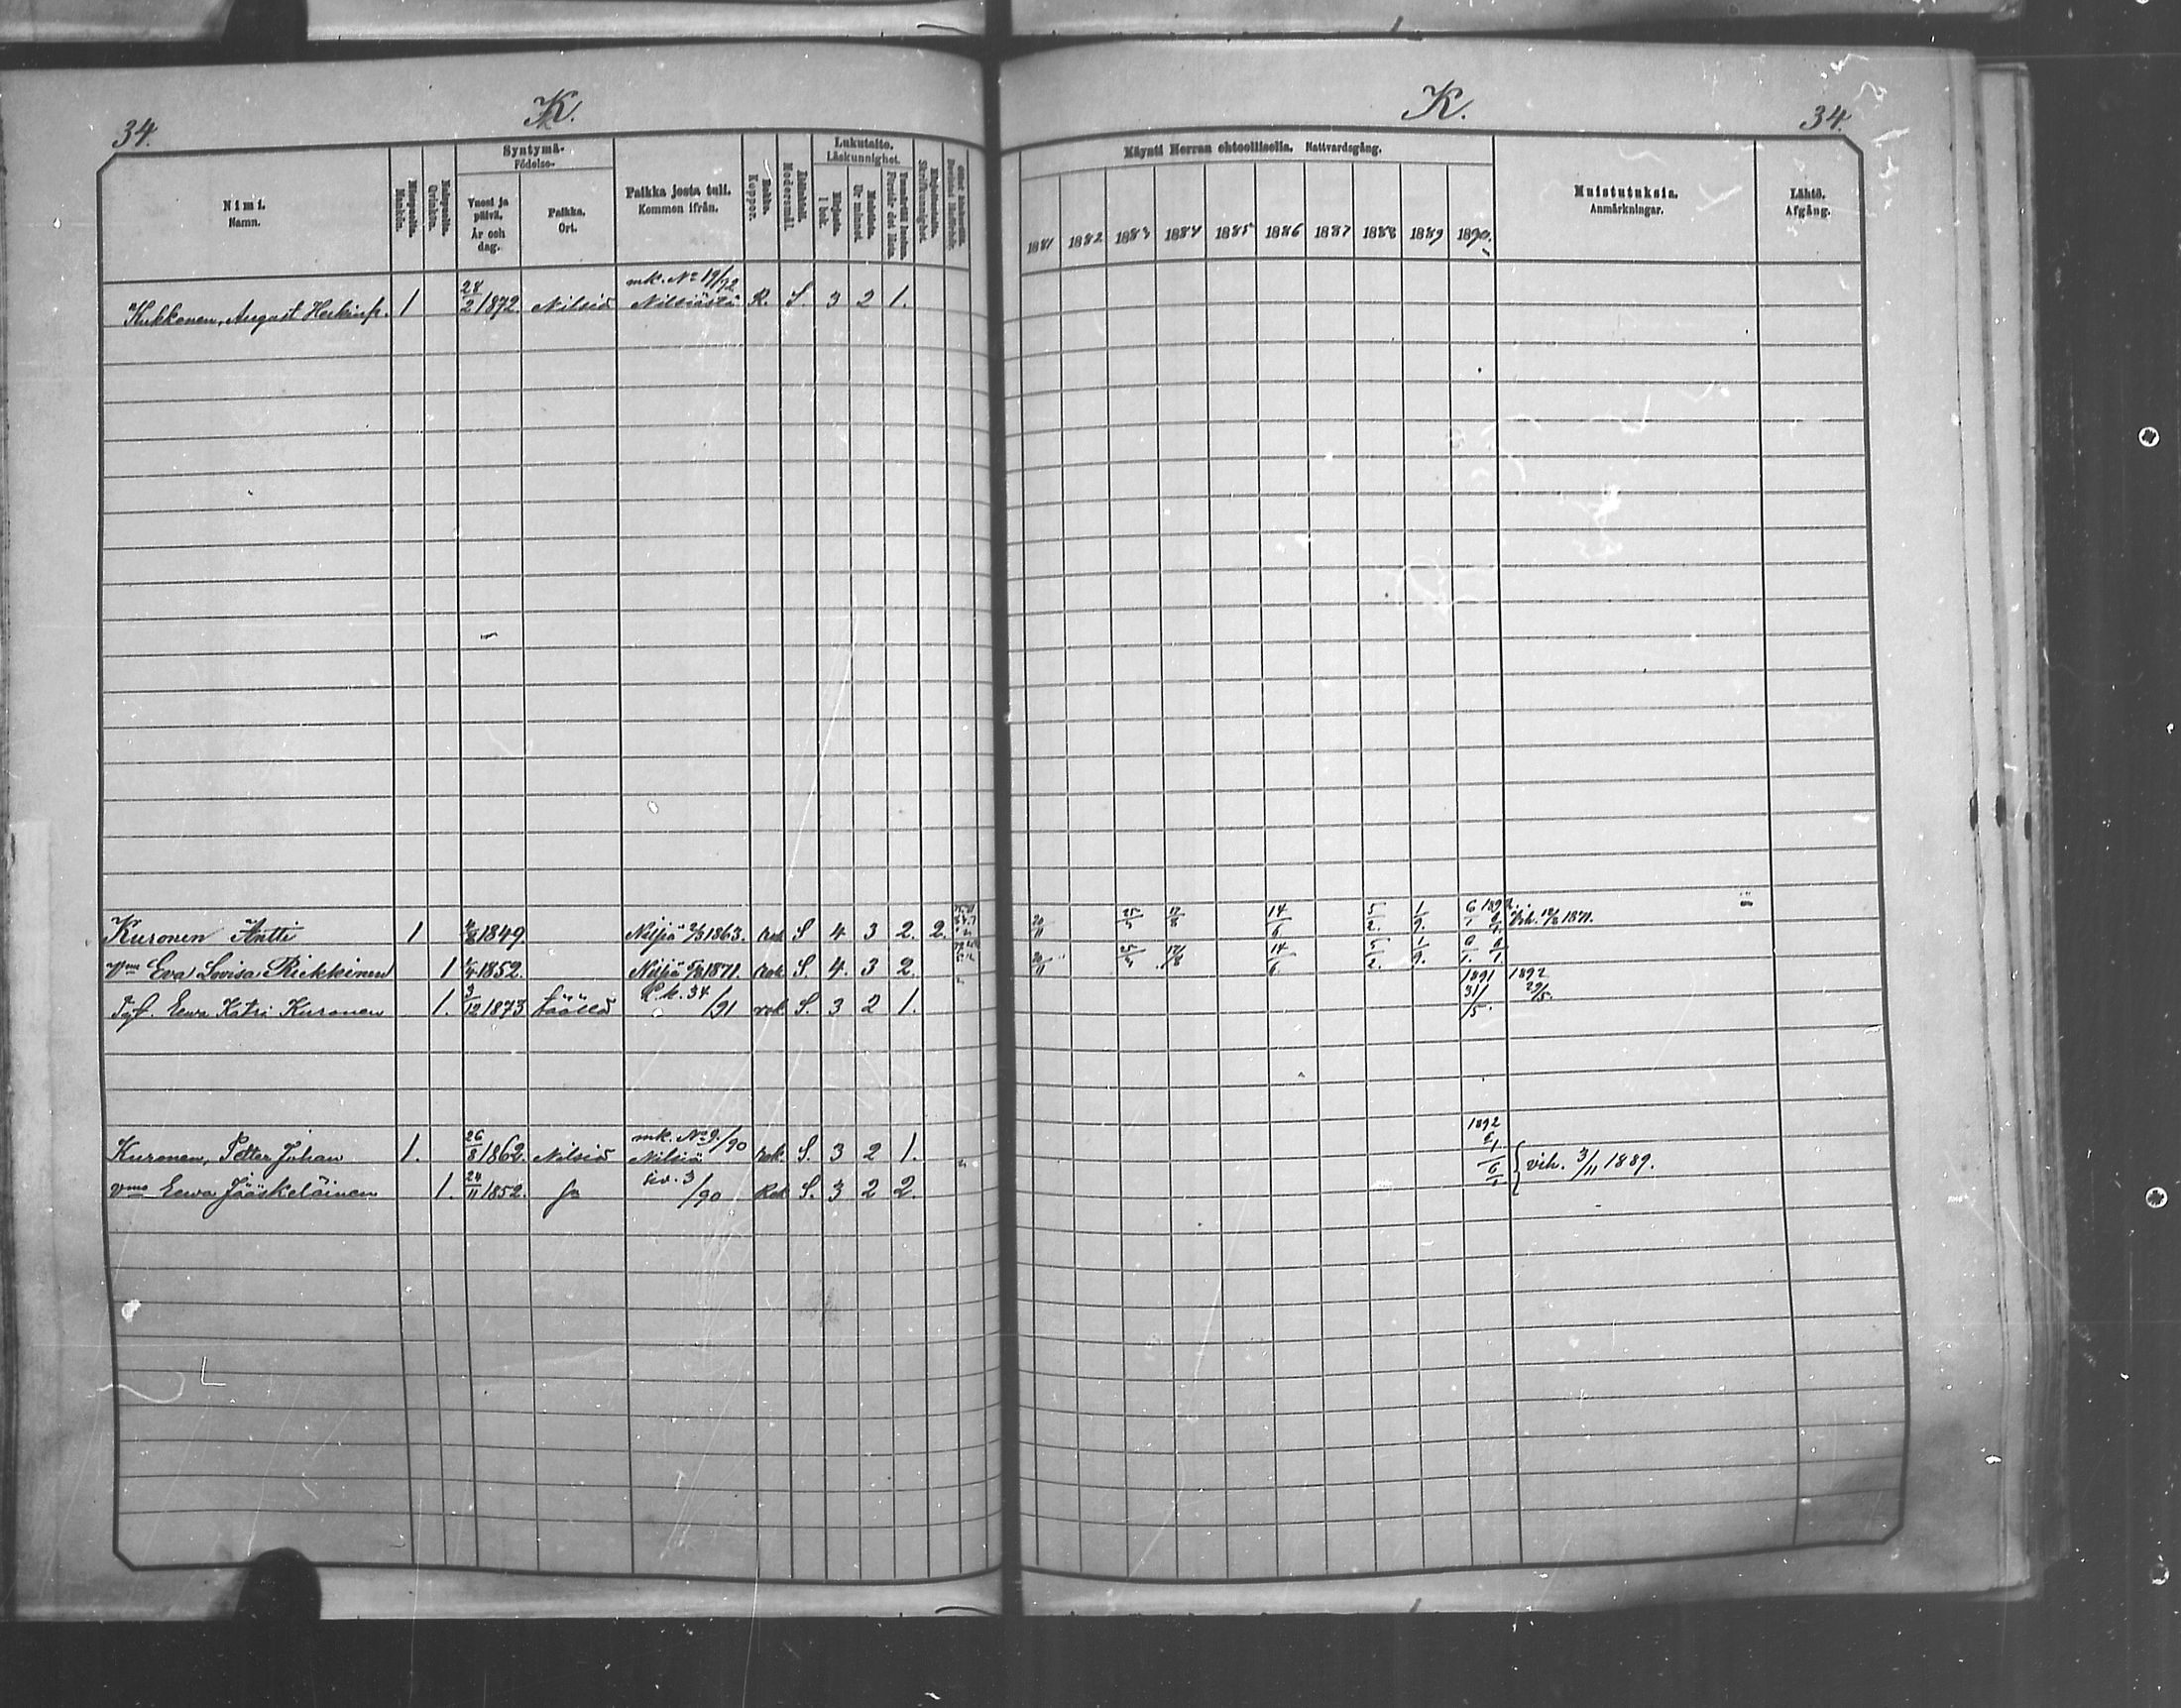 34.
K.
Nimi.
Namn.
Miespuolia.
Mankön.
Naispuolia.
Qvinkön.
Syntymä-
Födelse-
Vuosi ja päivä.
År och dag.
Paikka.
Ort.
Paikka josta tuli.
Kommen ifrån.
Rokko.
Koppor.
Äidinkieli.
Modersmål.
Lukutaito.
Läskunnighet.
Kirjasta.
I bok.
Muistista.
Ur minnet.
Ymmärtää luetun.
Förstår det lästa.
Kirjoitustaito.
Skrifkunnighet.
Kukkonen, August Heikinp. 1 28/2 1872. Nilsiä mk. No 19/92 Nilsiästä R. S. 3 2 1.
Kuronen Antti 1 1849. 1863. rok S 4 3 2. 2.
Vmo Eva Lovisa Riekkinen 1 1852. 1871. rok. S. 4. 3 2.
Tyt. Eewa Katri Kuronen 1. 3/12 1873 täällä L.k. 34/91 rok S. 3 2 1.
Kuronen, Petter Johan 1. 26/8 1862. Nilsiä mk. No 9./90 Nilsiä rok. S. 3 2 1.
vmo Eewa Jääskeläinen 1. 24/11 1852. siv. 3/90 Rok S. 3 2 2.
K.
34.
Käynti Herran ehtoollisella. Nattvardsgång.
1881 1882 1883 1884 1885 1886 1887 1888 1889 1890.
Muistutuksia.
Anmärkningar.
Lähtö.
Afgång.
20/11 25/3 17/8 14/6 5/2. 1/9. 6/1 1892. Vih. 1871.
20/11 25/3 17/8 14/6 5/2. 1/9.
1891 1892
31/5. 29/5.
1892
6/1
6/1 vih. 3/11 1889.